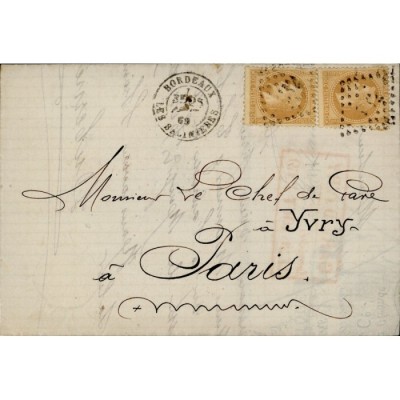 BORDEAUX
69
LES BENJAMINES
Monsieur Le Chef de Gare
à Yvry
à Paris.